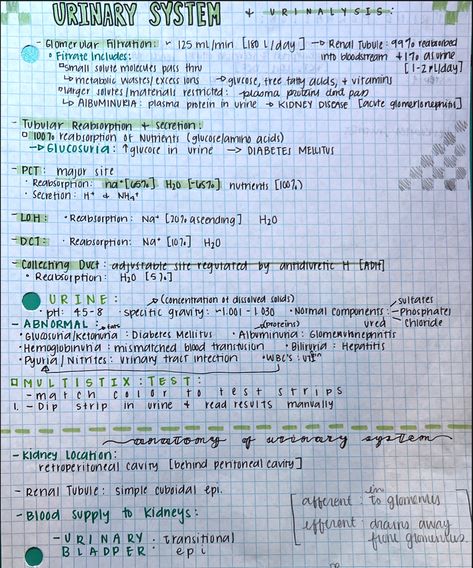 URINARY SYSTEM + URINALYSIS:
- Glomerular Filtration: ~ 125 mL/min [180 L/day] → Renal Tubule: 99% reabsorbed
◦ Filtrate Includes: into bloodstream + 1% as urine
▫ small solute molecules pass thru [1-2 L/day]
↳ metabolic wastes/excess ions → glucose, free fatty acids, + vitamins
▫ larger solutes/materials restricted: plasma proteins and
↳ ALBUMINURIA: plasma protein in urine → KIDNEY DISEASE [acute glomerlonephritis]
- Tubular Reabsorption + Secretion:
▫ 100% reabsorption of Nutrients (glucose/amino acids)
→ Glucosuria: ↑ glucose in urine → DIABETES MELLITUS
- PCT: major site
· Reabsorption: Na⁺ [65%] H₂O [~65%] nutrients [100%]
· Secretion: H⁺ & NH₄⁺
- LOH: · Reabsorption: Na⁺ [20% asending] H₂O
- DCT: · Reabsorption: Na⁺ [10%] H₂O
- Collecting Duct: adjustable site regulated by antidiuretic H [ADH]
· Reabsorption: H₂O [5%]
URINE: (concentration of dissolved solids) sulfates
· pH: 4.5-8 · specific gravity: ~1.001-1.030 · Normal components: Phosphates
urea chloride
- ABNORMAL: fats (proteins)
· Glucosuria/Ketonuria: Diabetes Mellitus · Albuminuria: Glomerulonephritis
· Hemoglobinuria: mismatched blood transfusion · Biliruria: Hepatitis
· Pyuria/Nitrites: urinary tract infection · WBC's: UTI
▫ MULTISTIX: TEST:
- match color to test strips
1. - Dip strip in urine & read results manually
anatomy of urinary system
- Kidney Location:
retroperitoneal cavity [behind peritoneal cavity]
- Renal Tubule: simple cuboidal epi.
- Blood supply to kidneys:
afferent: in to glomerulus
efferent: drains away from glomerulus
- URINARY BLADDER: transitional epi